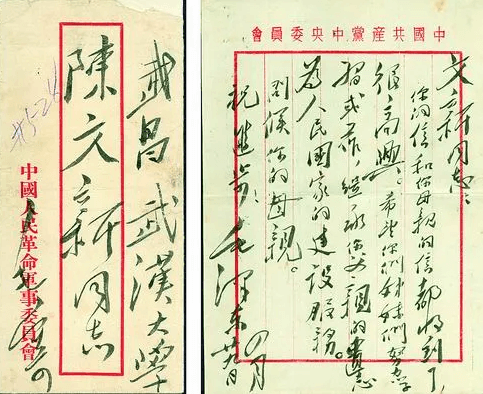 武昌武漢大學
陳文新同志
中國人民革命軍事委員會
中國共產黨中央委員會
文新同志：
你的信和你母親的信都收到了，
很高興。希望你们姊妹們努力学
習或工作，继承你父親的遺志，
为人民國家的建設服務。
问候你的母親。
祝進步！
毛澤東
四月
廿九日